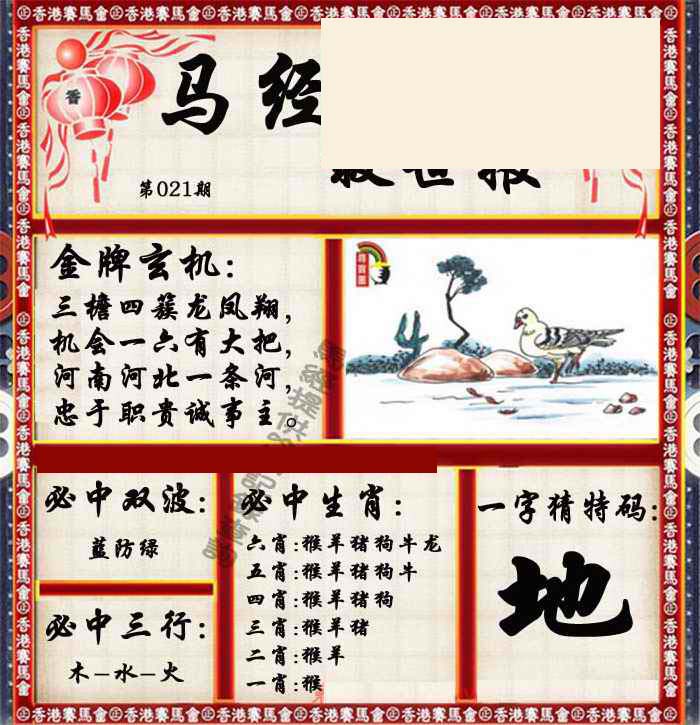 香港賽馬會
马经
救世报
第021期
金牌玄机:
三檐四簇龙凤翔,
机会一六有大把,
河南河北一条河,
忠于职贵诚事主。
必中双波:
蓝防绿
必中三行:
木-水-火
必中生肖:
六肖:猴羊猪狗牛龙
五肖:猴羊猪狗牛
四肖:猴羊猪狗
三肖:猴羊猪
二肖:猴羊
一肖:猴
一字猜特码:
地